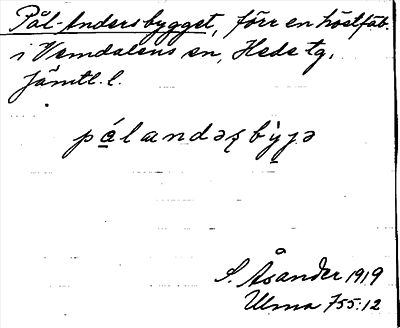 Pål-Andersbygget, förr en höstfäb.
i Vemdalens sn, Hede tg,
Jämtl. l.
pálandəʂby̆ɟə
S. Åsander 1919
Ulma 755:12